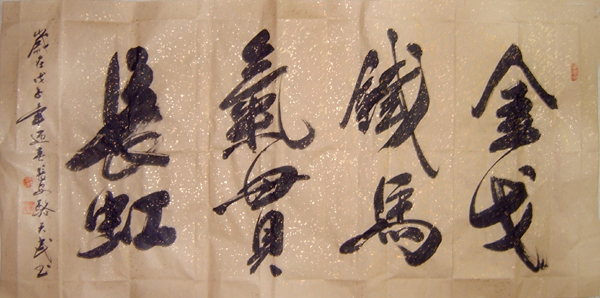 金戈
鐵馬
氣貫
長虹
歲在戊子年